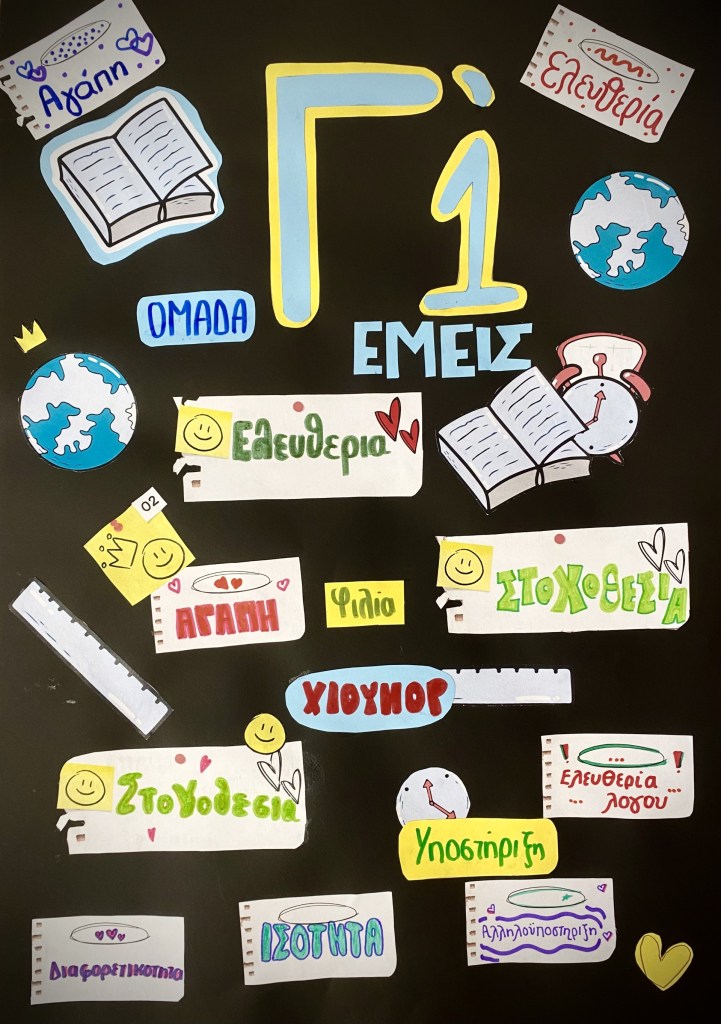 Αγάπη
Ελευθερία
Γ'1
ΟΜΑΔΑ
ΕΜΕΙΣ
Ελευθερια
02
ΑΓΑΠΗ
Φιλία
ΣΤΟΧΟΘΕΣΙΑ
ΧΙΟΥΜΟΡ
Στοχοθεσια
... Ελευθερία
... λογου ...
Υποστήριξη
Διαφορετικότητα
ΙΣΟΤΗΤΑ
Αλληλοϋποστήριξη